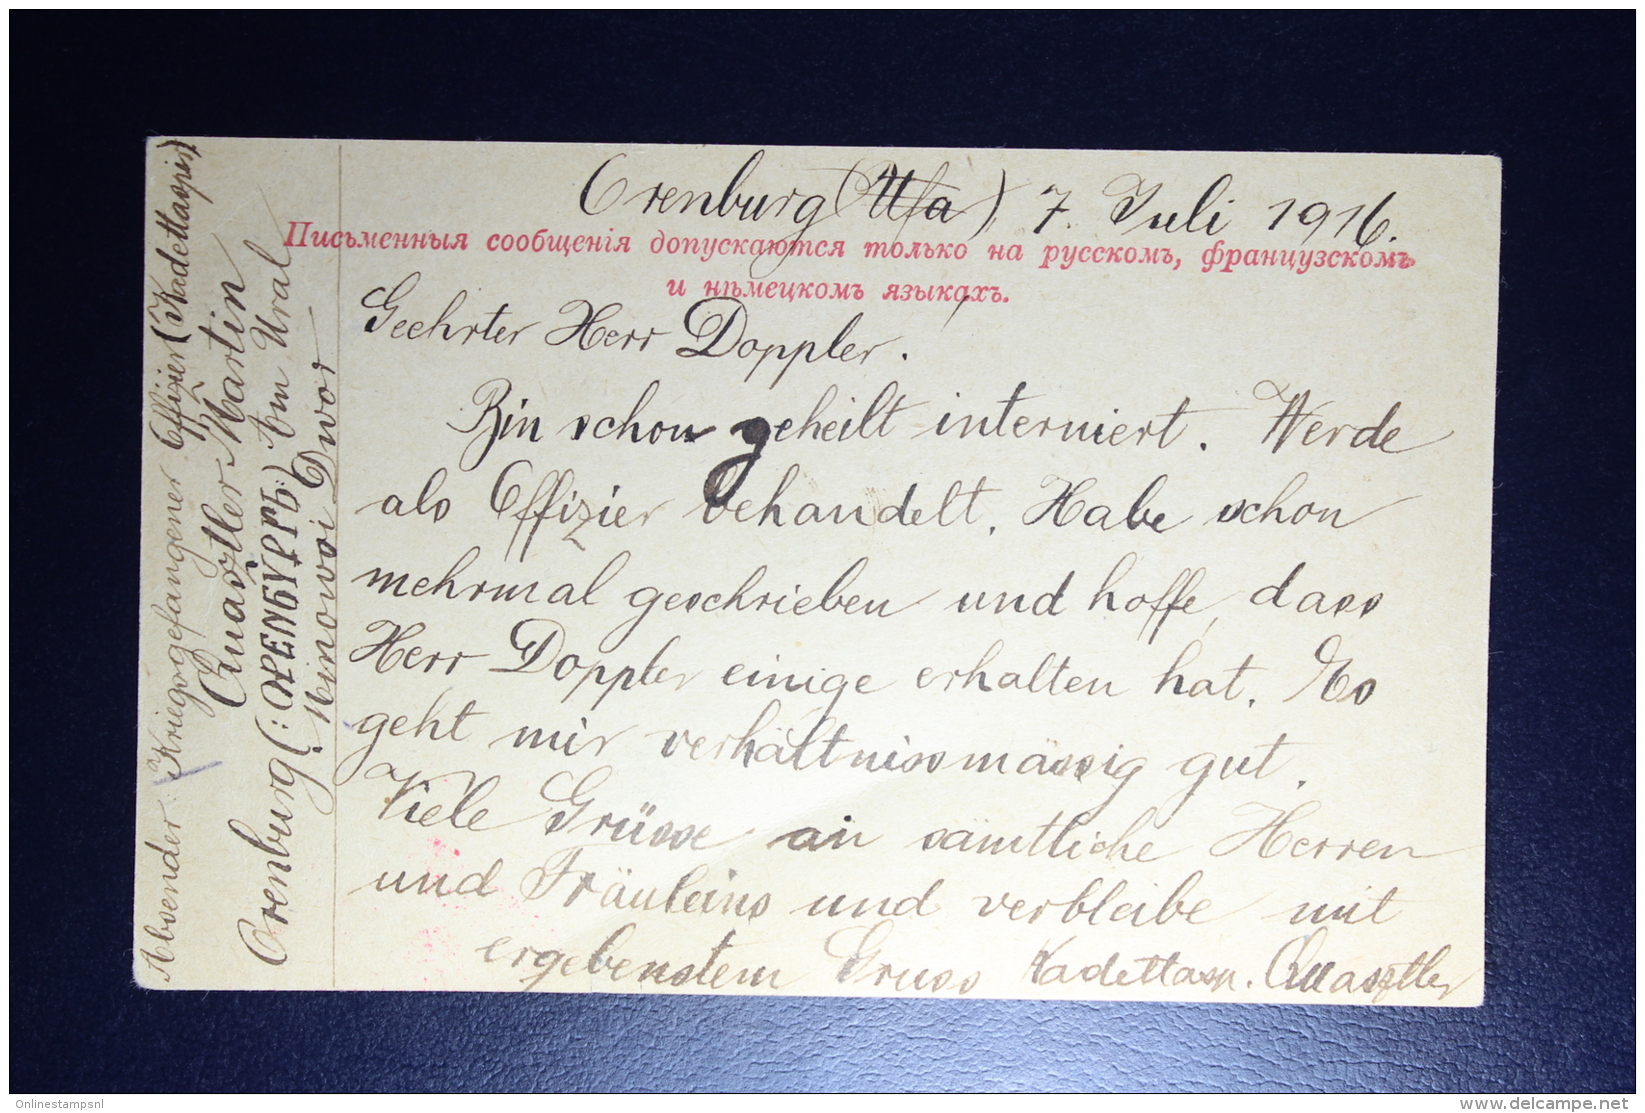 Orenburg (Ufa), 7. Juli 1916.
Письменныя сообщенія допускаются только на русскомъ, французскомъ
и нѣмецкомъ языкахъ.
Geehrter Herr Doppler.
Bin schon geheilt interniert. Werde
als Offizier behandelt. Habe schon
mehrmal geschrieben und hoffe, dass
Herr Doppler einige erhalten hat. Es
geht mir verhältnissmässig gut.
Viele Grüsse an sämtliche Herren
und Fräuleins und verbleibe mit
ergebenstem Gruss Kadettasp. Quasztler
Absender: Kriegsgefangener Offizier (Kadettaspir)
Quasztler Martin
Orenburg (:ОРЕНБУРГЪ:) am Ural
Minovoi Dwor
Onlinestampsnl
delcampe.net